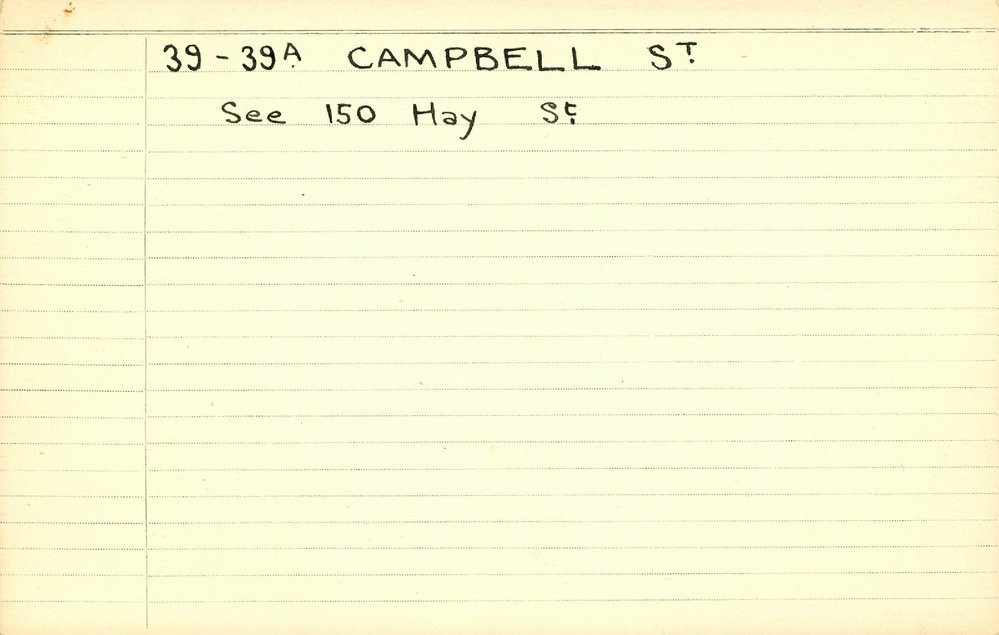 39 - 39A CAMPBELL ST.
See 150 Hay St.